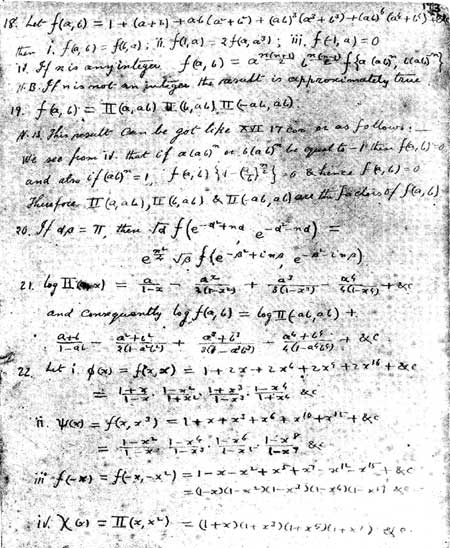 173
18. Let f(a, b) = 1 + (a+b) + ab(a²+b²) + (ab)³(a³+b³) + (ab)⁶(a⁴+b⁴) + &c
then i. f(a, b) = f(b, a); ii. f(1, a) = 2f(a, a³); iii. f(-1, a) = 0
iv. If n is any integer f(a, b) = a^{n(n+1)/2} b^{n(n-1)/2} f{a(ab)^n, b(ab)^{-n}}
N.B. If n is not an integer the result is approximately true
19. f(a, b) = Π(a, ab) Π(b, ab) Π(-ab, ab).
N.B. This result can be got like XVI 17 cor or as follows:—
We see from iv. that if a(ab)^n or b(ab)^n be equal to -1 then f(a, b) = 0
and also if (ab)^n = 1, f(a, b){1-(a/b)^{n/2}} = 0 & hence f(a, b) = 0
Therefore Π(a, ab), Π(b, ab) & Π(-ab, ab) are the factors of f(a, b)
20. If αβ = π, then √α f(e^{-α²+nα}, e^{-α²-nα}) =
e^{n²/4} √β f{e^{-β²+inβ}, e^{-β²-inβ}}
21. log Π(a, x) = a/(1-x) - a²/2(1-x²) + a³/3(1-x³) - a⁴/4(1-x⁴) + &c
and consequently log f(a, b) = log Π(-ab, ab) +
(a+b)/(1-ab) - (a²+b²)/2(1-a²b²) + (a³+b³)/3(1-a³b³) - (a⁴+b⁴)/4(1-a⁴b⁴) + &c
22. Let i. φ(x) = f(x, x) = 1 + 2x + 2x⁴ + 2x⁹ + 2x¹⁶ + &c
= (1+x)/(1-x) · (1-x²)/(1+x²) · (1+x³)/(1-x³) · (1-x⁴)/(1+x⁴) &c
ii. ψ(x) = f(x, x³) = 1 + x + x³ + x⁶ + x¹⁰ + x¹⁵ + &c
= (1-x²)/(1-x) · (1-x⁴)/(1-x³) · (1-x⁶)/(1-x⁵) · (1-x⁸)/(1-x⁷) &c
iii f(-x) = f(-x, -x²) = 1 - x - x² + x⁵ + x⁷ - x¹² - x¹⁵ + &c
= (1-x)(1-x²)(1-x³)(1-x⁴)(1-x⁵) &c
iv. χ(x) = Π(x, x²) = (1+x)(1+x³)(1+x⁵)(1+x⁷) &c.